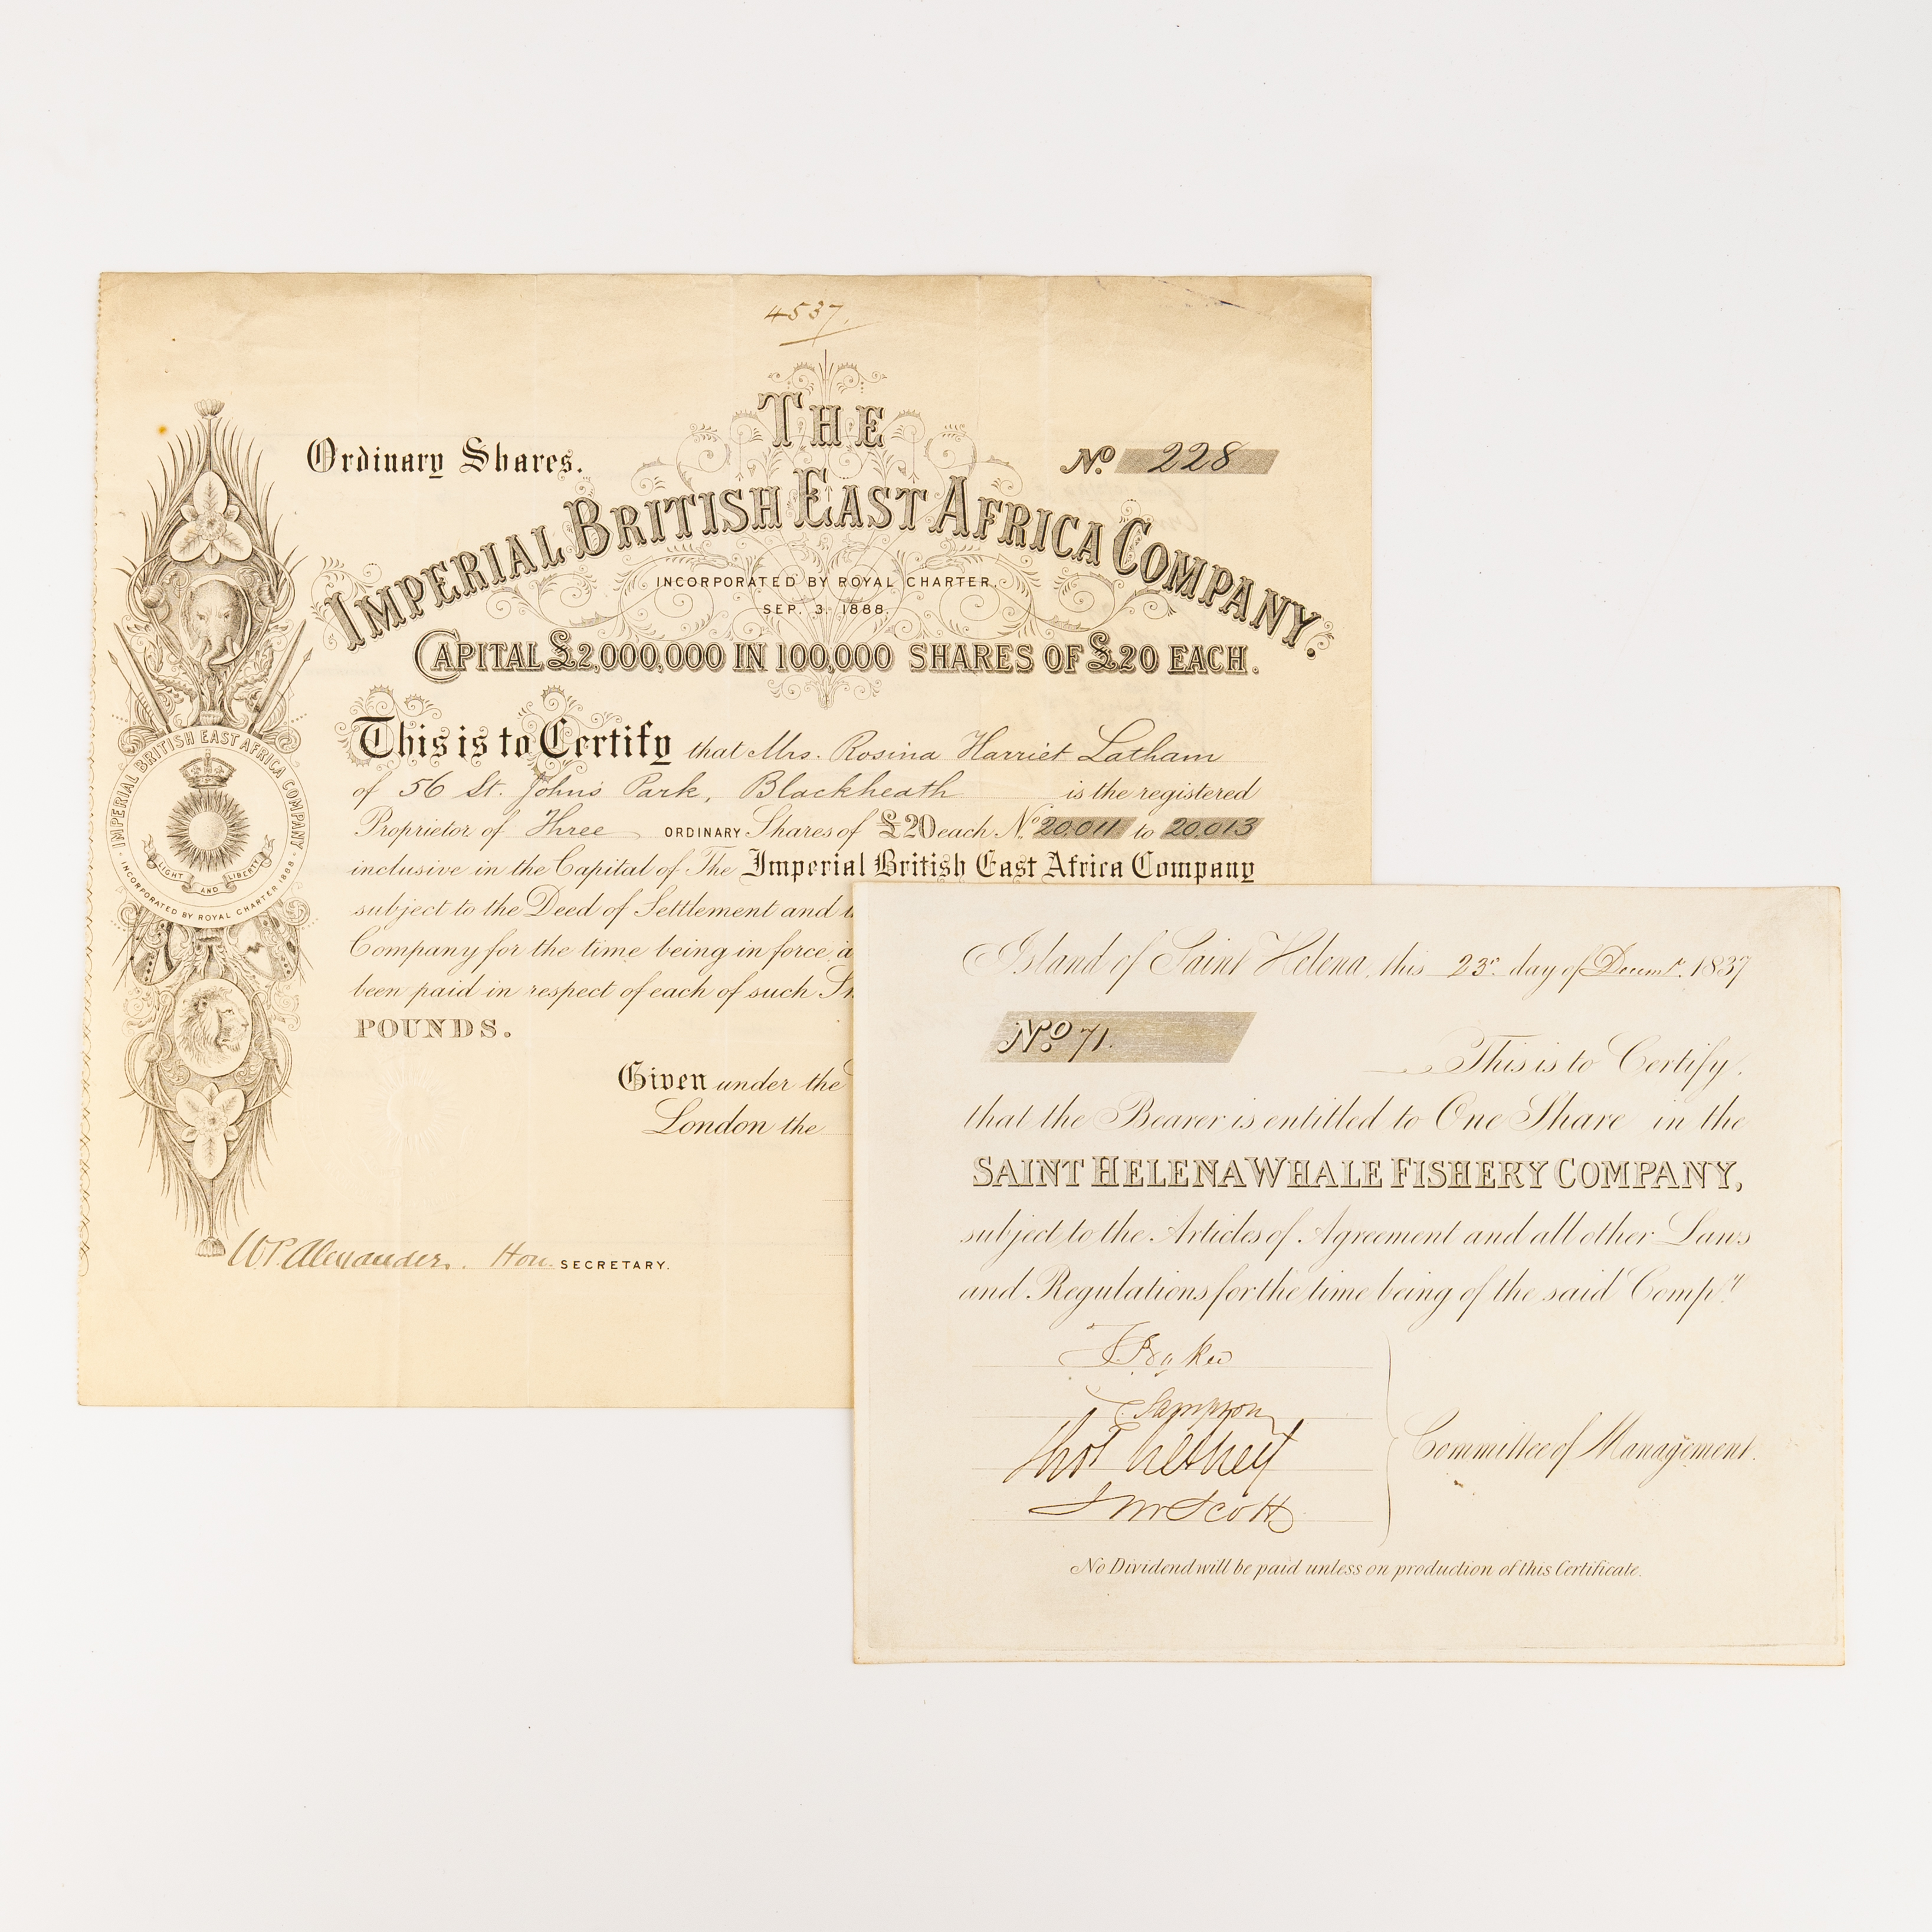 4537.
THE
Ordinary Shares.
No. 228
IMPERIAL BRITISH EAST AFRICA COMPANY.
INCORPORATED BY ROYAL CHARTER,
SEP. 3, 1888.
CAPITAL £2,000,000 IN 100,000 SHARES OF £20 EACH.
This is to Certify that Mrs. Rosina Harriet Latham
of 56 St. John's Park, Blackheath is the registered
Proprietor of Three ORDINARY Shares of £20 each No. 20.011 to 20.013
inclusive in the Capital of The Imperial British East Africa Company
subject to the Deed of Settlement and
Company for the time being in force
been paid in respect of each of such
POUNDS.
Given under the
London the
W.P. Alexander. Hon. SECRETARY.
IMPERIAL BRITISH EAST AFRICA COMPANY
LIGHT AND LIBERTY
INCORPORATED BY ROYAL CHARTER 1888
Island of Saint Helena, this 23rd day of Decemr. 1837
No. 71.
This is to Certify,
that the Bearer is entitled to One Share in the
SAINT HELENA WHALE FISHERY COMPANY,
subject to the Articles of Agreement and all other Laws
and Regulations for the time being of the said Compy
Sampson
Scott
Committee of Management.
No Dividend will be paid unless on production of this Certificate.